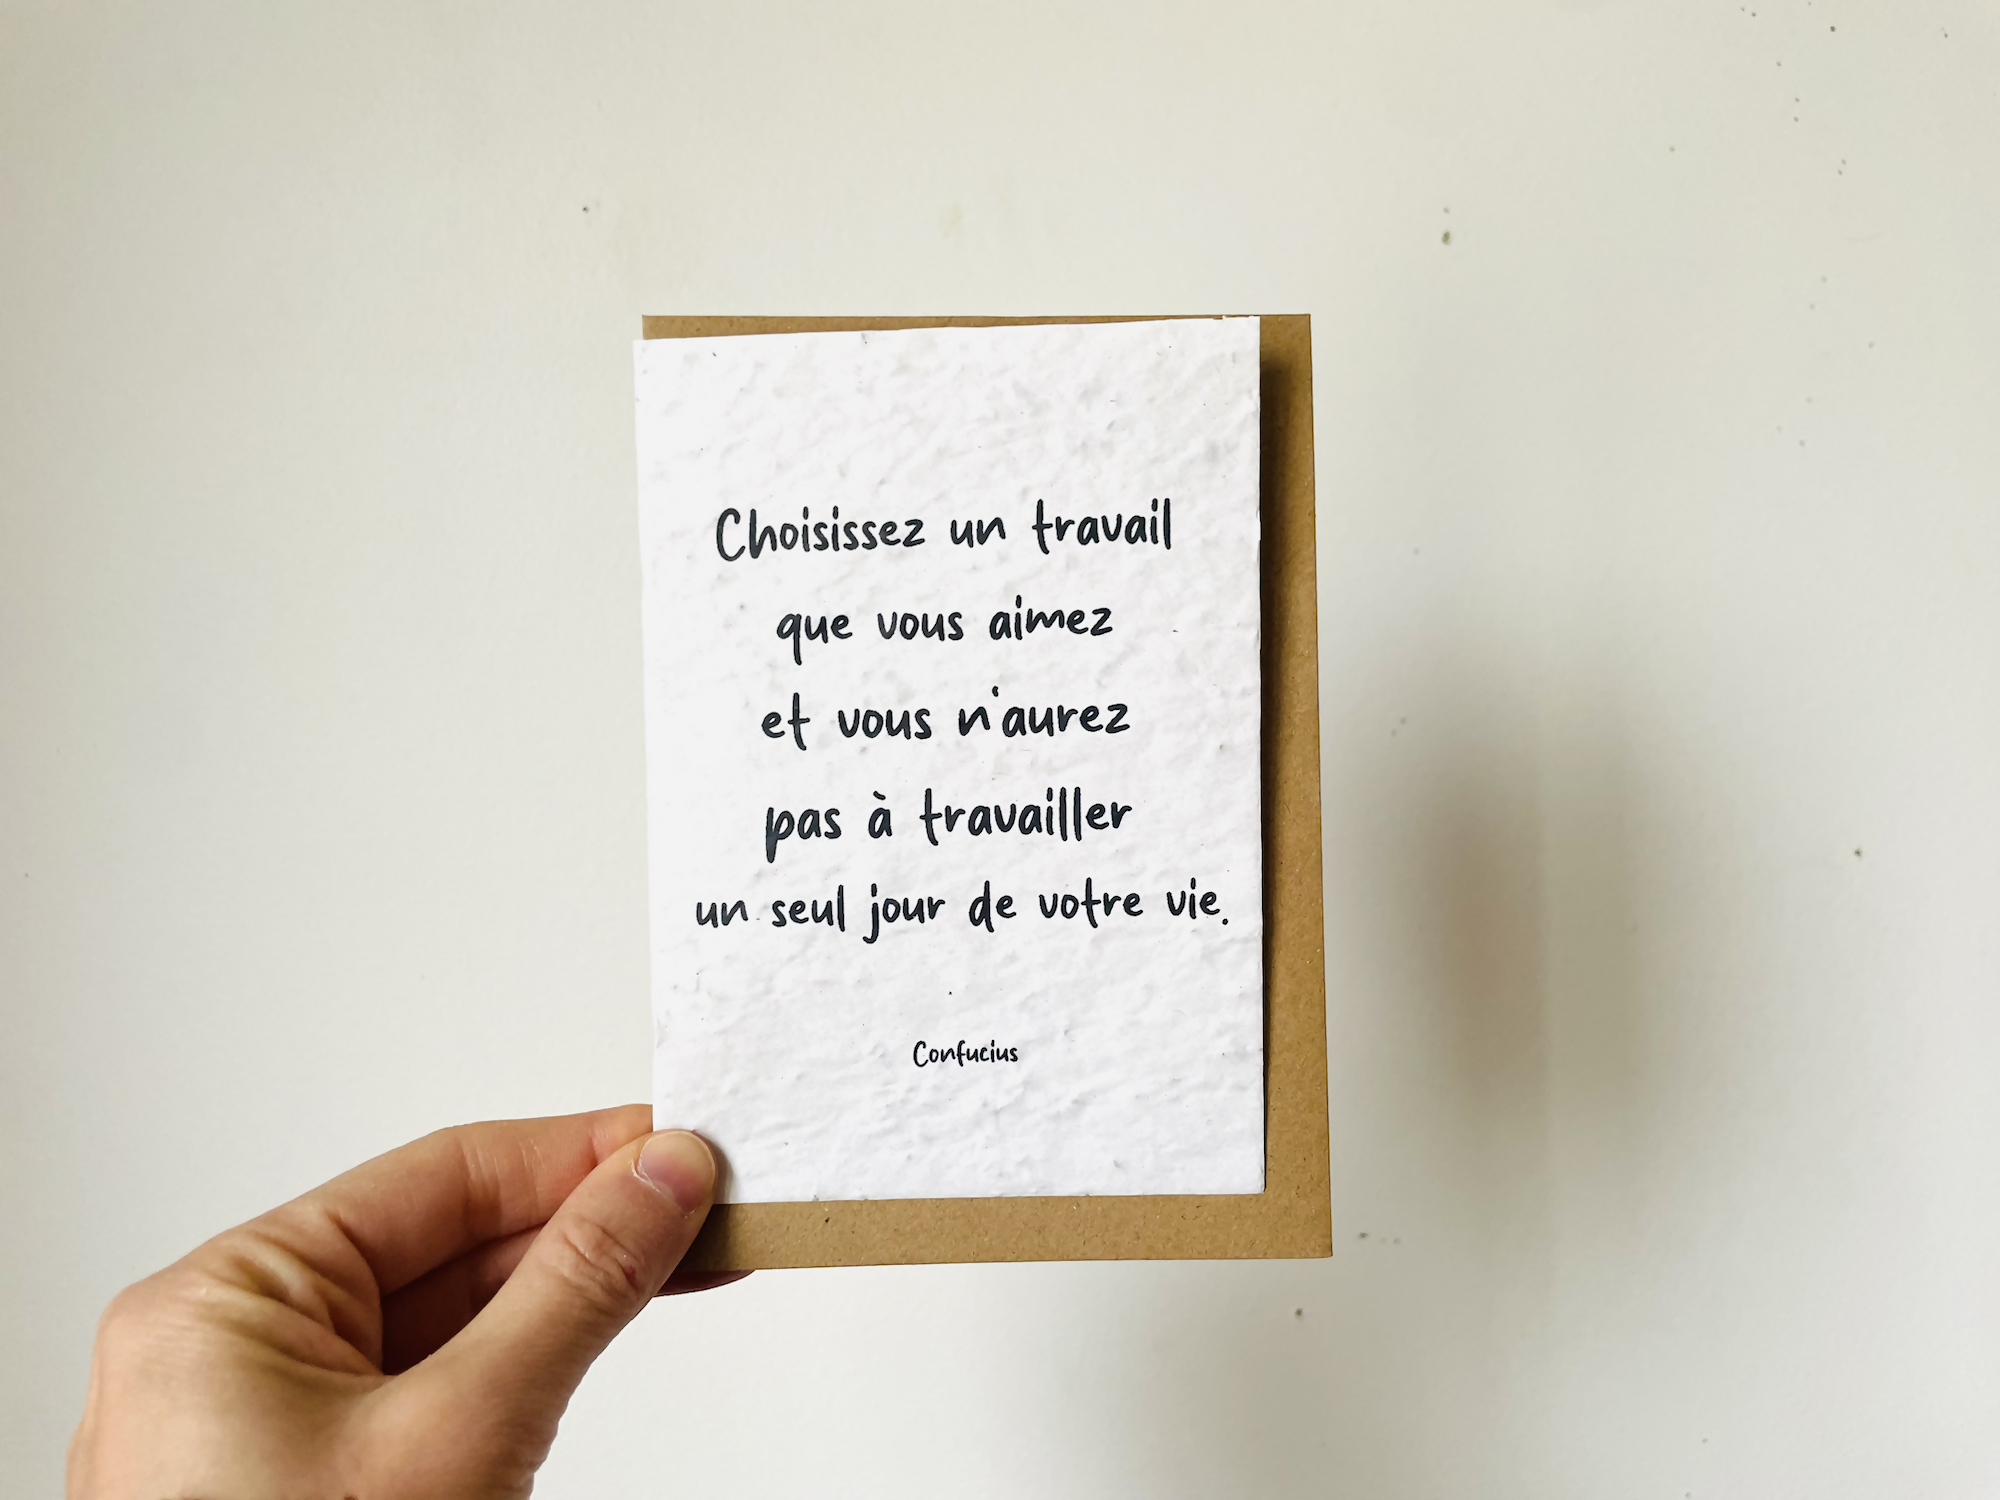 Choisissez un travail
que vous aimez
et vous n'aurez
pas à travailler
un seul jour de votre vie.
Confucius